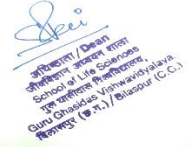 अधिष्ठाता / Dean
जीव विज्ञान अध्ययन शाला
School of Life Sciences
गुरू घासीदास विश्वविद्यालय,
Guru Ghasidas Vishwavidyalaya
बिलासपुर (छ.ग.) / Bilaspur (C.G.)